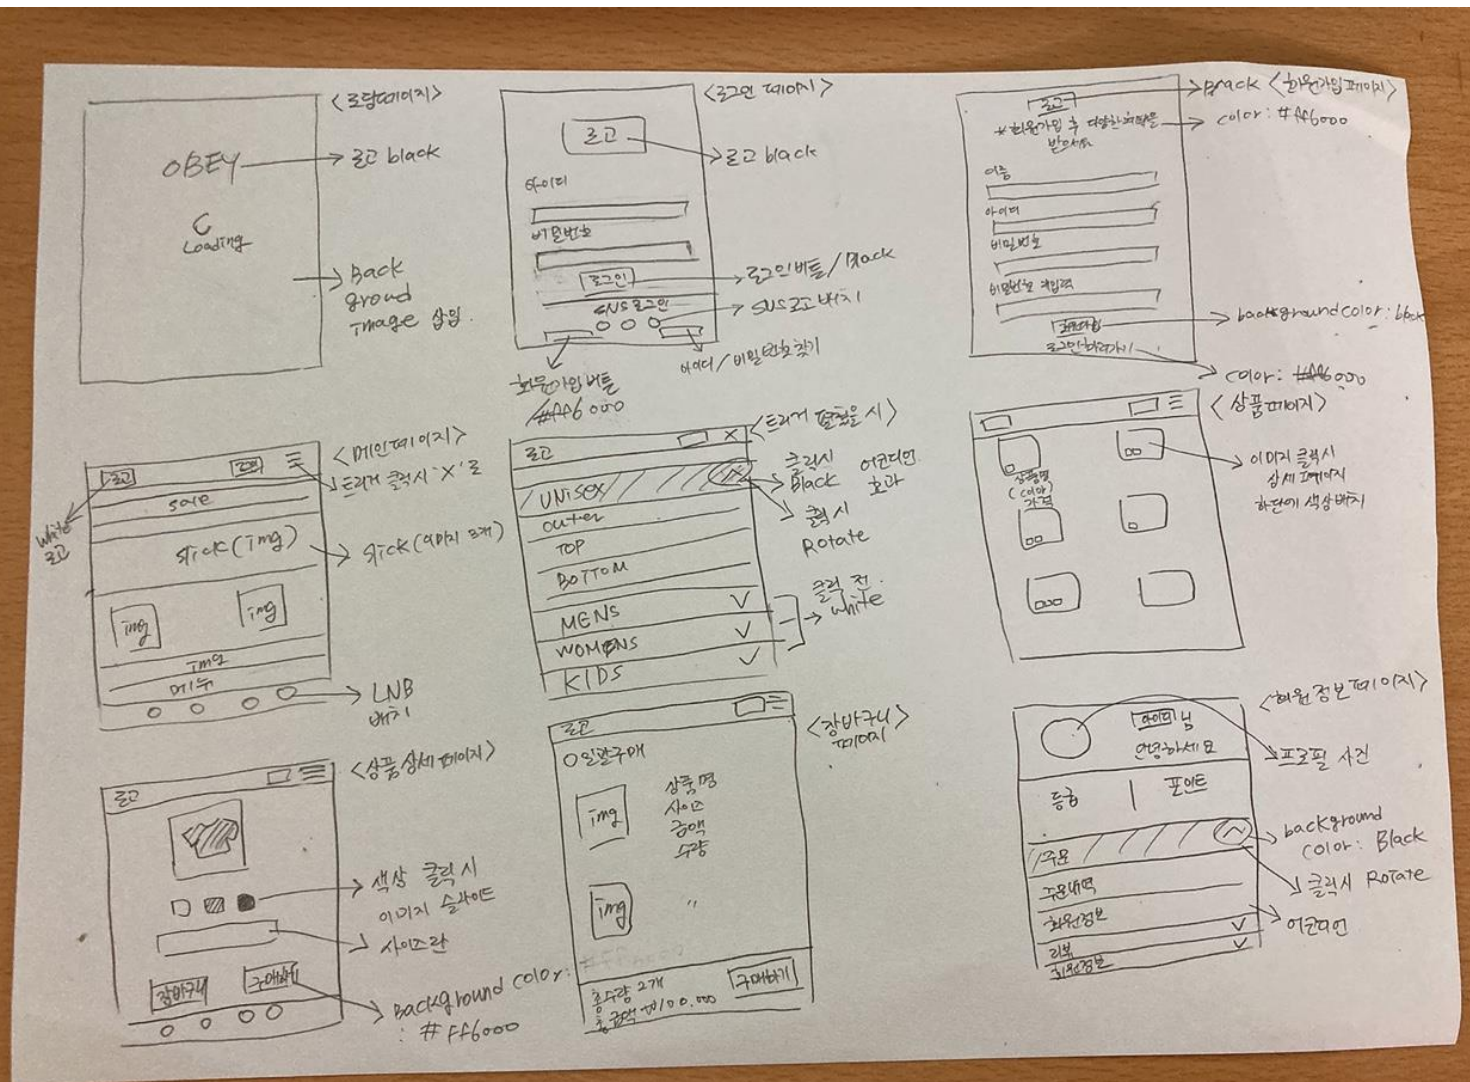 <로딩페이지>
OBEY
로고 black
Loading
Back
ground
image 삽입.
<로그인 페이지>
로고
로고 black
아이디
비밀번호
로그인
로그인버튼/Black
SNS로그인
SNS로고 배치
아이디/비밀번호찾기
회원가입버튼
#ff6000
<회원가입 페이지>
로고
Black
*회원가입 후 다양한 혜택을
받으세요
color: #ff6000
이름
아이디
비밀번호
비밀번호 재입력
회원가입
background color: black
로그인하러가기
color: #ff6000
<메인페이지>
로고
white
로고
트리거 클릭시 'X'로
sale
slick(img)
slick(이미지 3개)
img
img
img
메뉴
LNB
배치
<트리거 펼쳤을 시>
로고
X
UNISEX
클릭시
Black
어코디언
효과
outer
TOP
BOTTOM
클릭시
Rotate
MENS
WOMENS
KIDS
클릭 전
white
<상품페이지>
상품명
(color)
가격
이미지 클릭시
상세 페이지
하단에 색상배치
<상품상세페이지>
로고
색상 클릭시
이미지 슬라이드
사이즈란
장바구니
구매하기
Background color:
: #ff6000
<장바구니
페이지>
로고
일괄구매
img
상품명
사이즈
금액
수량
img
"
총수량 2개
총금액 ₩100.000
구매하기
<회원정보페이지>
아이디 님
안녕하세요
프로필 사진
등급
포인트
주문
background
color: Black
클릭시 Rotate
주문내역
회원정보
어코디언
리뷰
회원정보